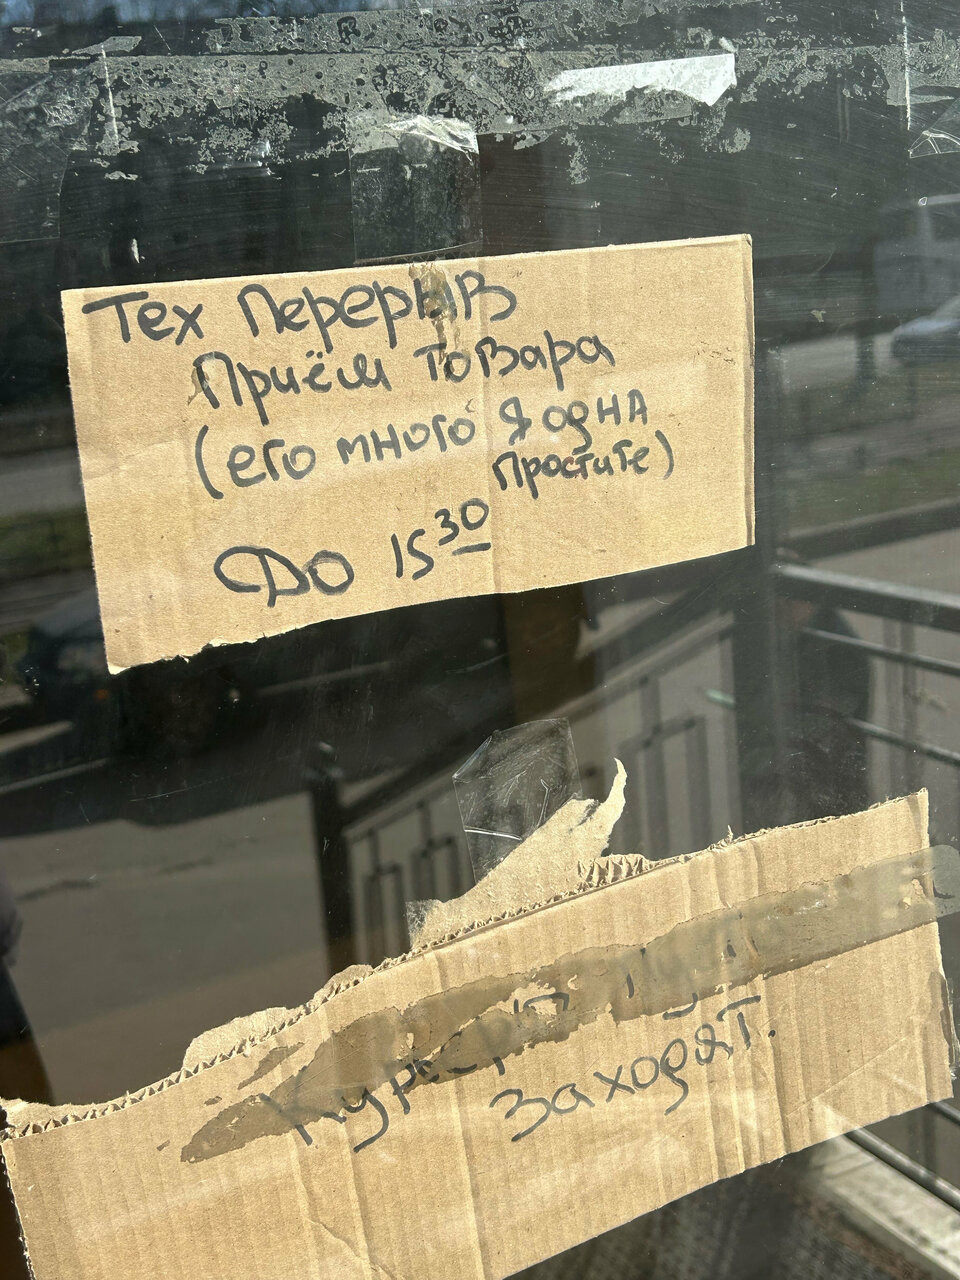 Тех Перерыв
Приём Товара
(его много я одна
простите)
До 15 30
заходят.